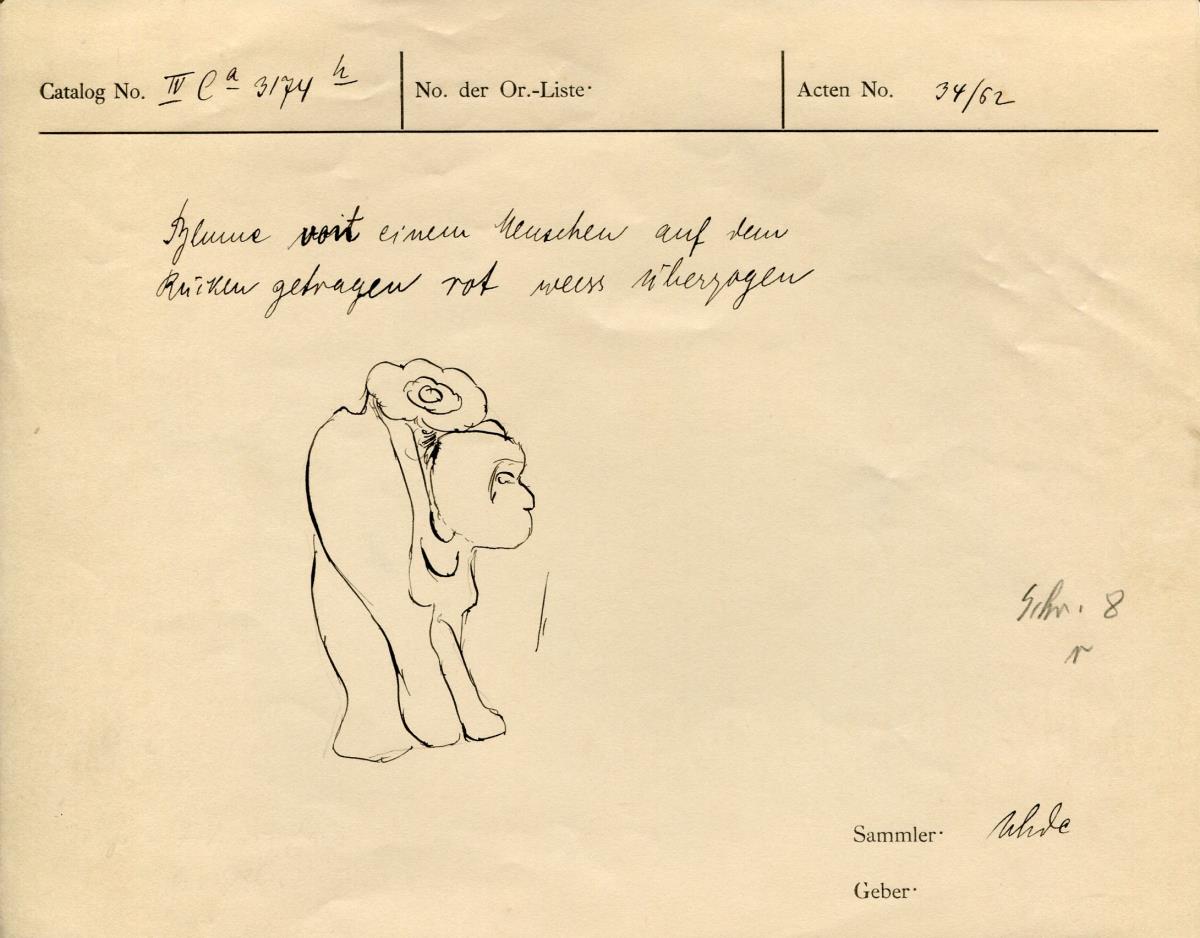 Catalog No. IV Ca 3174 h
No. der Or.-Liste·
Acten No. 34/62
Blume von einem Menschen auf dem
Rücken getragen rot weiss überzogen
Schr. 8
r
Sammler· Uhde
Geber·